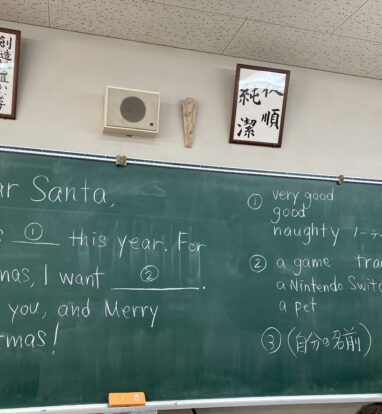 ar Santa,
① this year. For
mas, I want ②.
you, and Merry
mas!
① very good
good
naughty ノーティ
② a game
a Nintendo Switc
a pet
③ (自分の名前)
純潔
順
創造